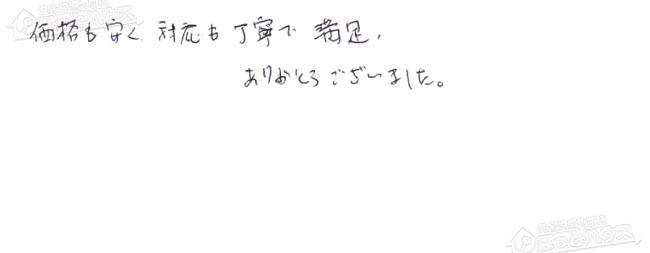 価格も安く 対応も丁寧で 満足、
ありがとうございました。